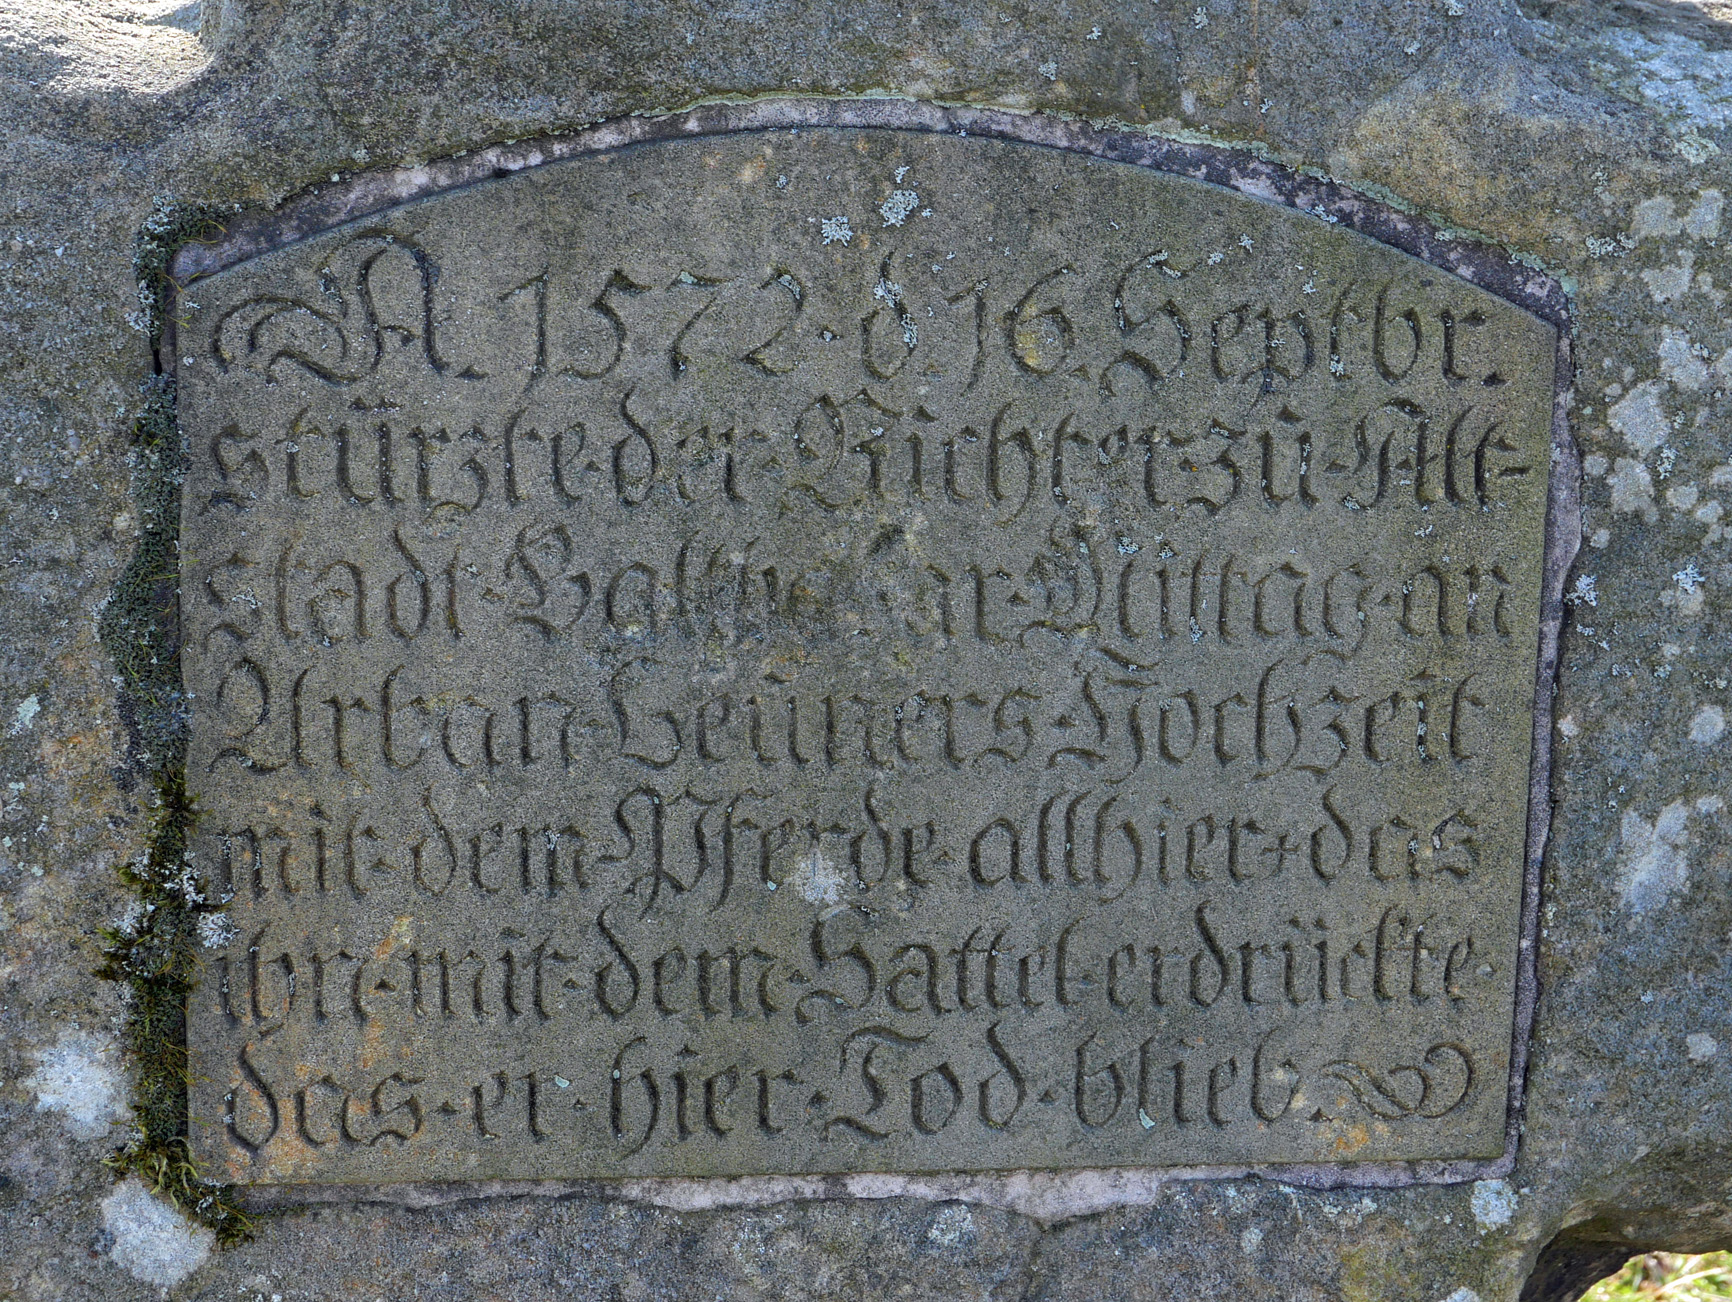 A. 1572. d. 16. Septbr.
stürzte·der·Richter·zü·Alt-
stadt·Balthasar·Mittag·an
Urban·Heüners·Hochzeit
mit·dem·Pferde·allhier+das
ihn·mit·dem·Sattel·erdrückte.
das·er·hier·Tod·blieb.